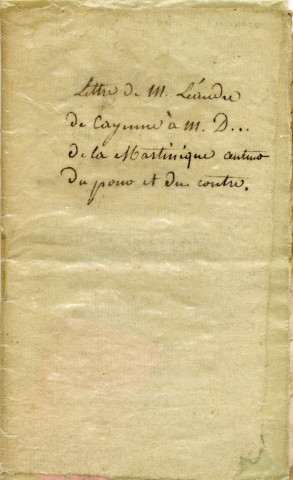 Lettre de M. Léandre
de Cayenne à M. D...
de la Martinique auteur
du pour et du contre.